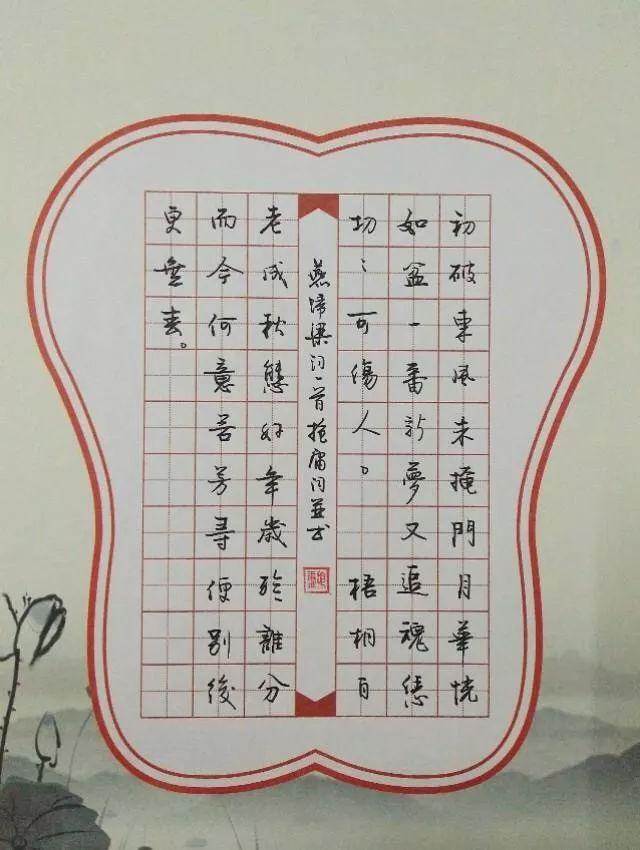 初破東風未掩門月華恍
如盆一番新夢又追魂
切〻可傷人。梧桐自
燕歸梁詞一首庸並书
老成秋態好年歲離分
而今何意苦芳尋便別後
更無春。